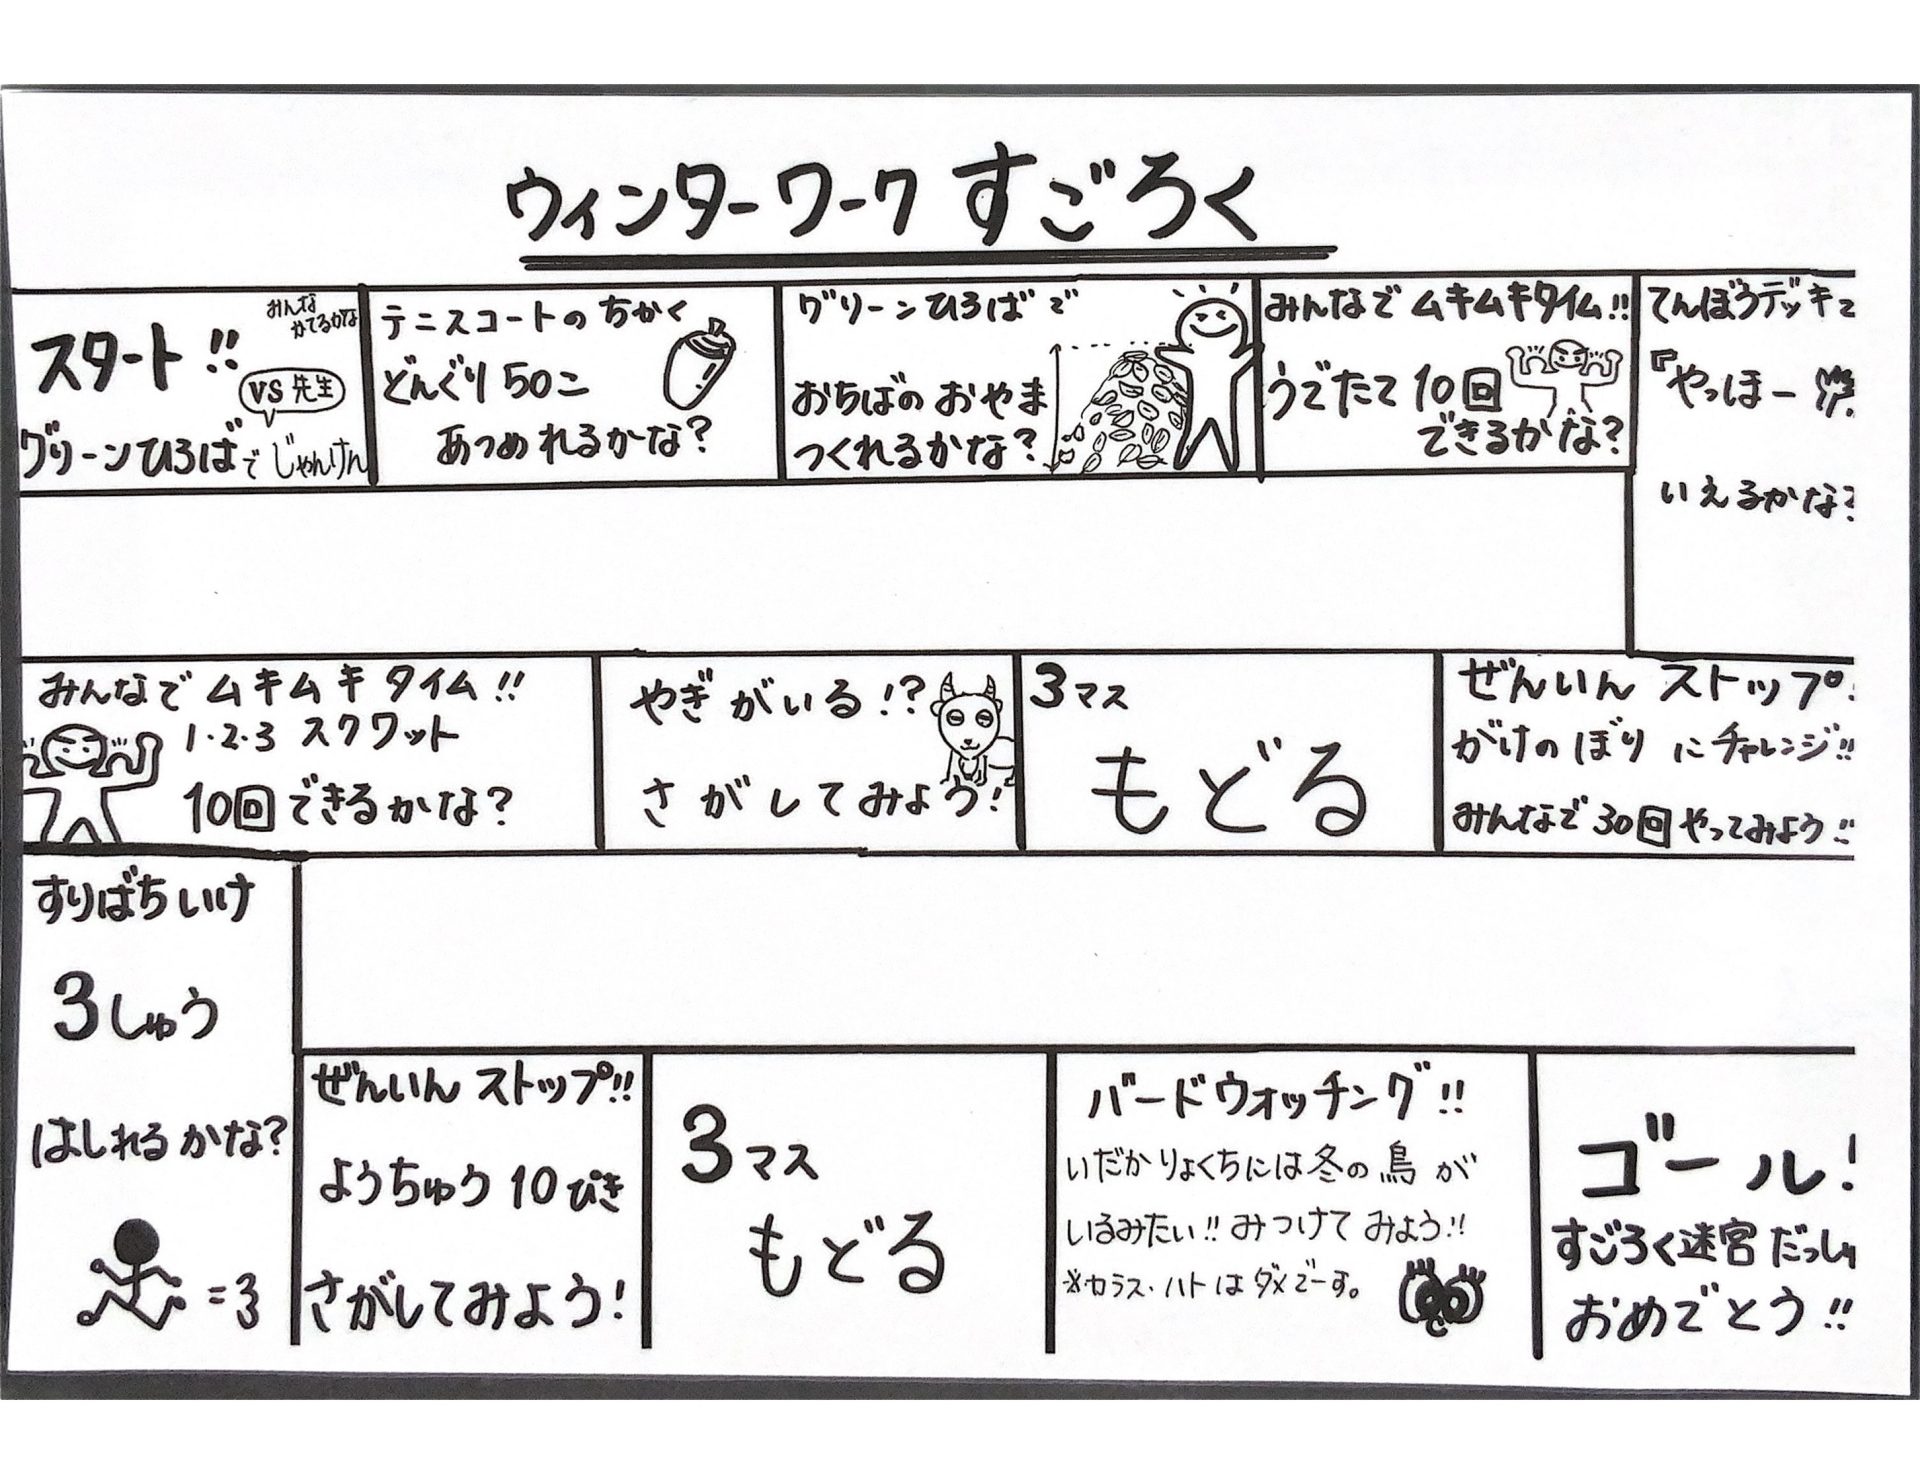 ウィンターワークすごろく
スタート!!
みんな
かてるかな
vs 先生
グリーンひろばでじゃんけん
テニスコートのちかく
どんぐり50こ
あつめれるかな?
グリーンひろばで
おちばのおやま
つくれるかな?
みんなでムキムキタイム!!
うでたて10回
できるかな?
てんぼうデッキで
『やっほー
いえるかな?
ぜんいんストップ!
がけのぼりにチャレンジ!!
みんなで30回やってみよう!!
3マス
もどる
やぎがいる!?
さがしてみよう!
みんなでムキムキタイム!!
1・2・3 スクワット
10回できるかな?
すりばちいけ
3しゅう
はしれるかな?
=3
ぜんいんストップ!!
ようちゅう10ぴき
さがしてみよう!
3マス
もどる
バードウォッチング!!
いだかりょくちには冬の鳥が
いるみたい!!みつけてみよう!!
※カラス・ハトはダメでーす。
ゴール!
すごろく迷宮だっしゅ
おめでとう!!